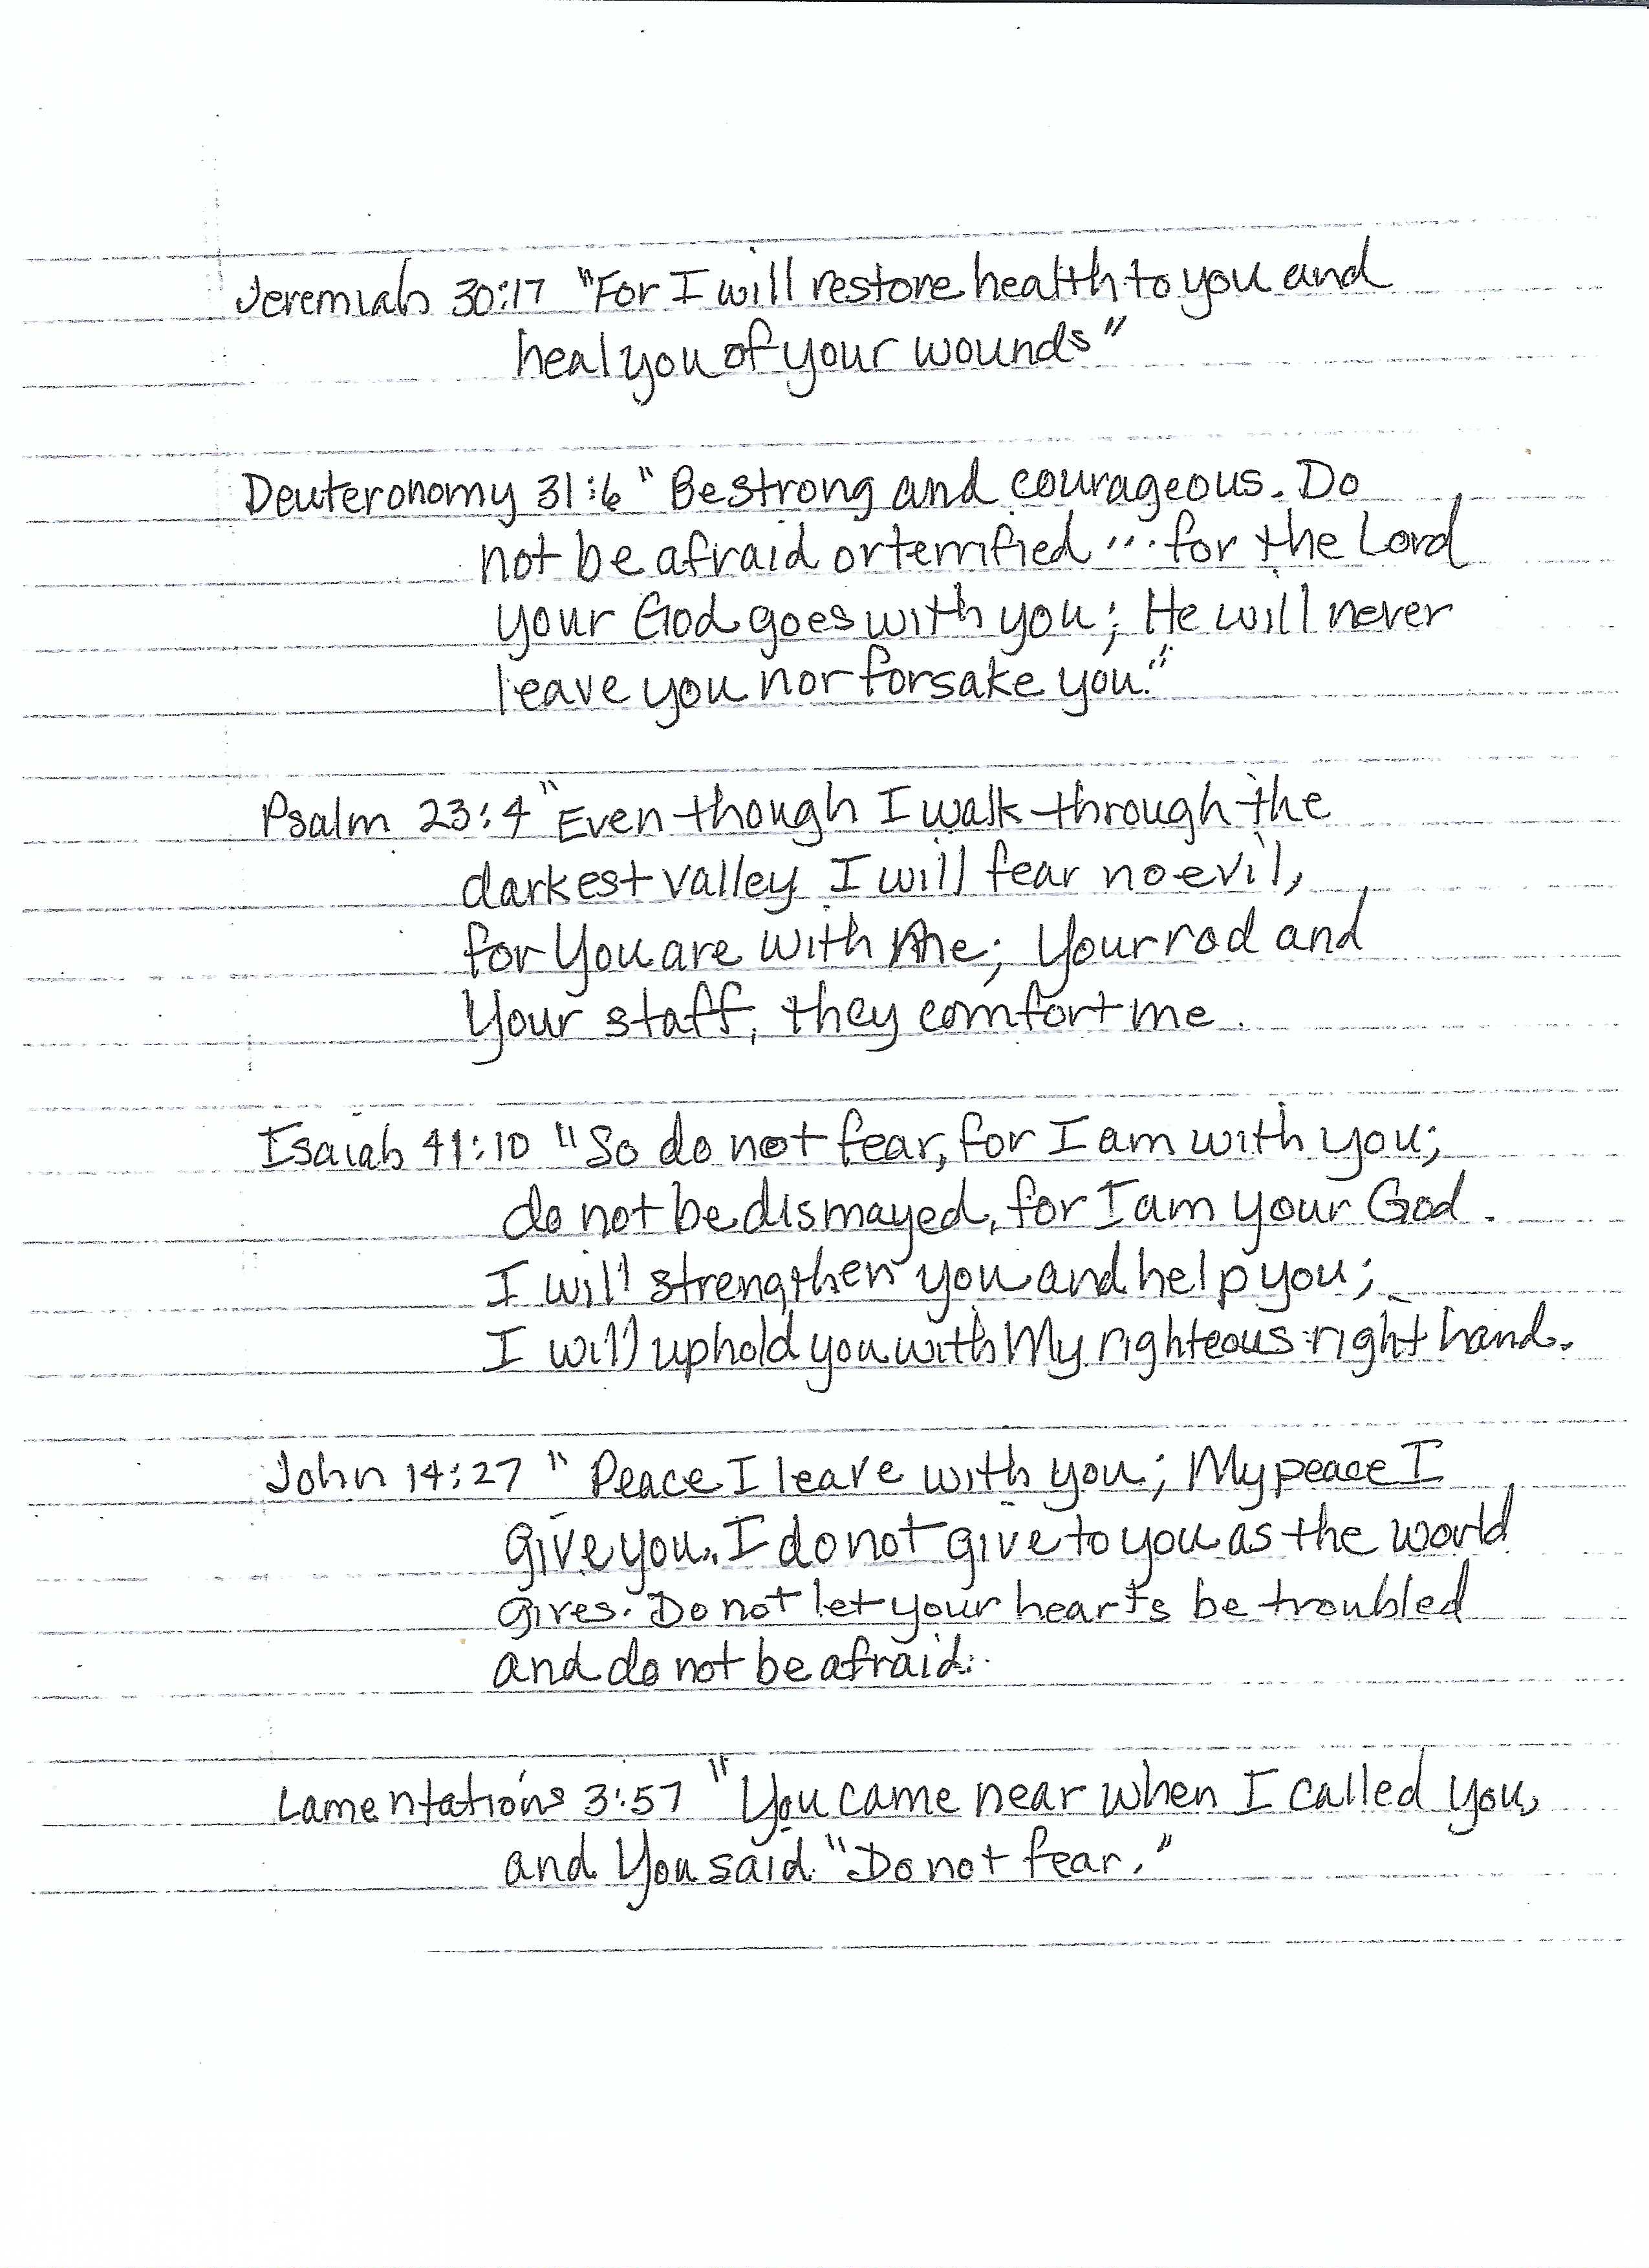 Jeremiah 30:17 "For I will restore health to you and
heal you of your wounds"
Deuteronomy 31:6 "Be strong and courageous. Do
not be afraid or terrified ... for the Lord
your God goes with you; He will never
leave you nor forsake you."
Psalm 23:4 "Even though I walk through the
darkest valley I will fear no evil,
for You are with me; Your rod and
Your staff, they comfort me.
Isaiah 41:10 "So do not fear, for I am with you;
do not be dismayed, for I am your God.
I will strengthen you and help you;
I will uphold you with My righteous right hand.
John 14:27 "Peace I leave with you; My peace I
give you. I do not give to you as the world
gives. Do not let your hearts be troubled
and do not be afraid.
Lamentations 3:57 "You came near when I called you,
and You said "Do not fear."